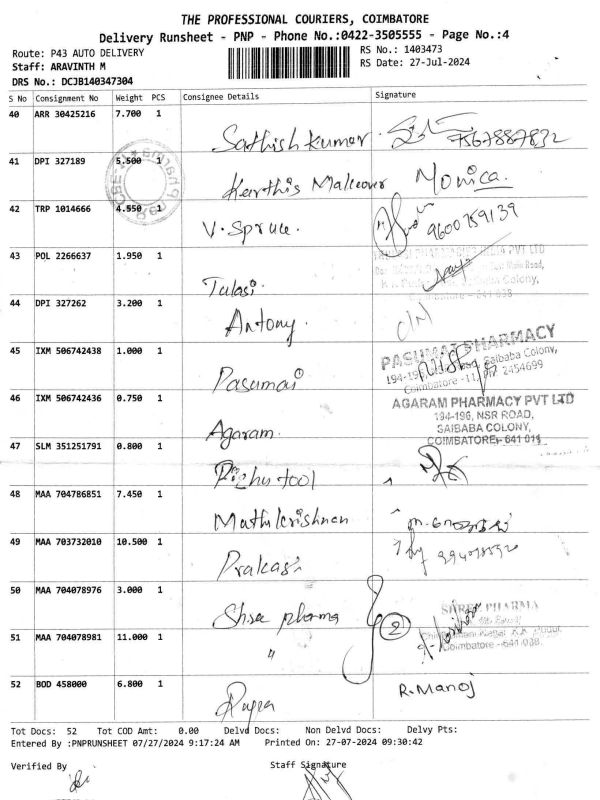 THE PROFESSIONAL COURIERS, COIMBATORE
Delivery Runsheet - PNP - Phone No.:0422-3505555 - Page No.:4
Route: P43 AUTO DELIVERY
RS No.: 1403473
Staff: ARAVINTH M
RS Date: 27-Jul-2024
DRS No.: DCJB140347304
S No Consignment No Weight PCS Consignee Details Signature
40 ARR 30425216 7.700 1
Sathish kumar 7567887832
41 DPI 327189 5.500 1
Karthis Makeover Monica.
42 TRP 1014666 4.550 1
V. Spruce. 9600759139
43 POL 2266637 1.950 1
Tulasi.
44 DPI 327262 3.200 1
Antony.
45 IXM 506742438 1.000 1
Pasumai
PASUMAI PHARMACY
Saibaba Colony,
Coimbatore - 11, 2454699
46 IXM 506742436 0.750 1
Agaram.
AGARAM PHARMACY PVT LTD
194-196, NSR ROAD,
SAIBABA COLONY,
COIMBATORE - 641 011
47 SLM 351251791 0.800 1
tool
48 MAA 704786851 7.450 1
Mathikrishnan
49 MAA 703732010 10.500 1
Prakas
50 MAA 704078976 3.000 1
Shree pharma 2
SHREE PHARMA
Coimbatore - 641 038
51 MAA 704078981 11.000 1
"
52 BOD 458000 6.800 1
R. Manoj
Tot Docs: 52 Tot COD Amt: 0.00 Delvd Docs: Non Delvd Docs: Delvy Pts:
Entered By :PNPRUNSHEET 07/27/2024 9:17:24 AM Printed On: 27-07-2024 09:30:42
Verified By Staff Signature